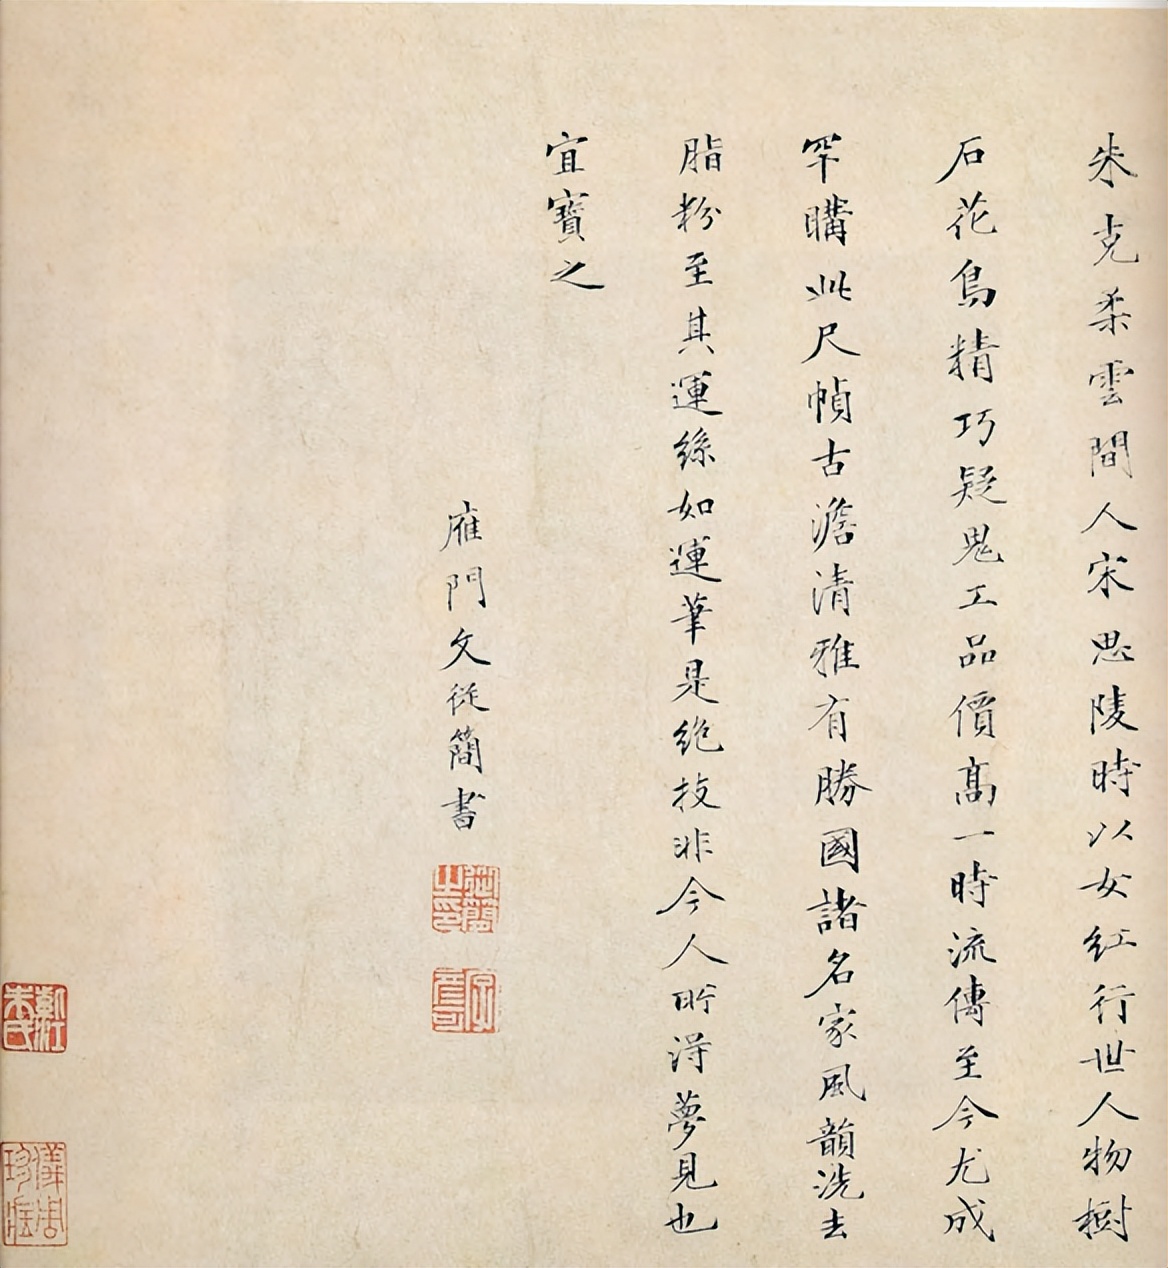 朱克柔雲間人宋思陵時以女紅行世人物樹
石花鳥精巧疑鬼工品價高一時流傳至今尤成
罕購此尺幀古澹清雅有勝國諸名家風韻洗去
脂粉至其運絲如運筆是絶技非今人所得夢見也
宜寶之
雁門文從簡書
從簡之印
字彥可
靳江朱氏
儀周珍藏